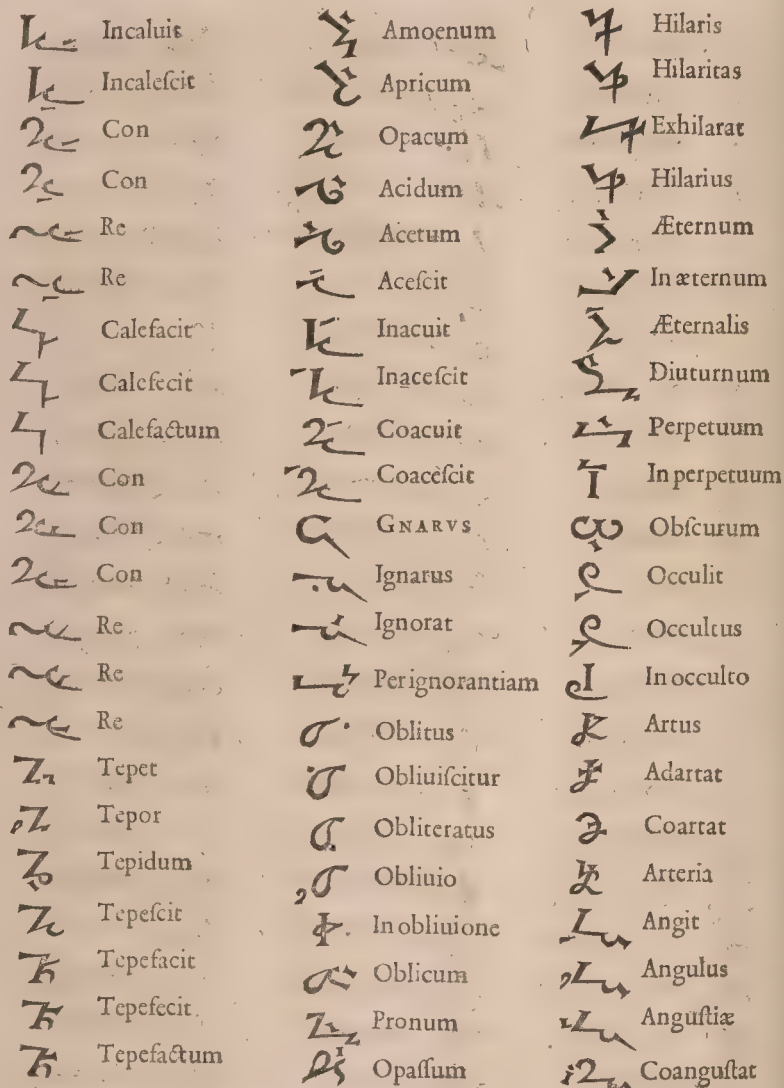 Incaluit
Incaleſcit
Con
Con
Re
Re
Calefacit
Calefecit
Calefactum
Con
Con
Con
Re
Re
Re
Tepet
Tepor
Tepidum
Tepeſcit
Tepefacit
Tepefecit
Tepefactum
Amoenum
Apricum
Opacum
Acidum
Acetum
Aceſcit
Inacuit
Inaceſcit
Coacuit
Coaceſcit
GNARVS
Ignarus
Ignorat
Perignorantiam
Oblitus
Obliuiſcitur
Obliteratus
Obliuio
In obliuione
Oblicum
Pronum
Opaſſum
Hilaris
Hilaritas
Exhilarat
Hilarius
Æternum
In æternum
Æternalis
Diuturnum
Perpetuum
In perpetuum
Obſcurum
Occulit
Occultus
In occulto
Artus
Adartat
Coartat
Arteria
Angit
Angulus
Anguſtiæ
Coanguſtat